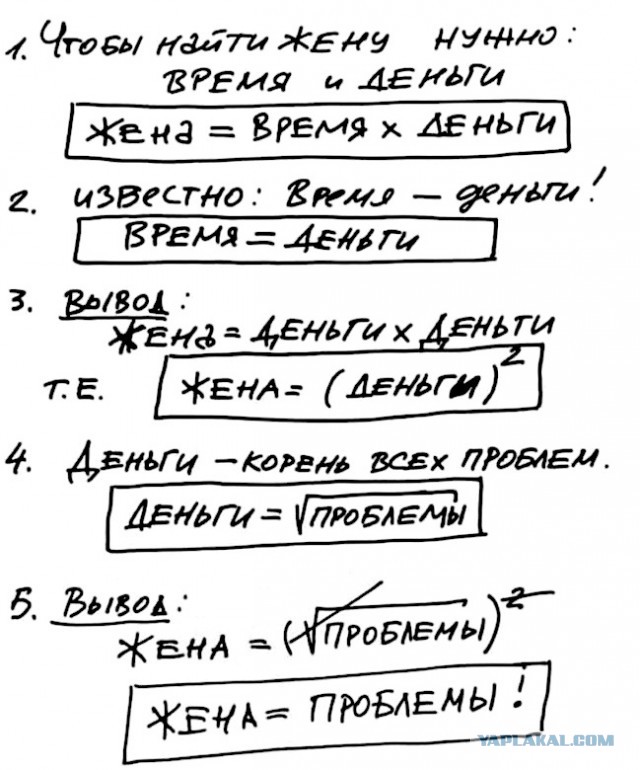 1. Чтобы найти жену нужно:
время и деньги
жена = время x деньги
2. известно: время – деньги!
время = деньги
3. Вывод:
жена = деньги x деньги
т.е. жена = (деньги)²
4. Деньги – корень всех проблем.
деньги = √проблемы
5. Вывод:
жена = (√проблемы)²
жена = проблемы!
YAPLAKAL.COM